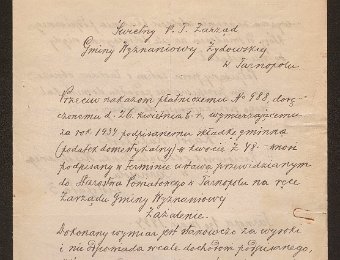 Świetny P. T. Zarząd
Gminy Wyznaniowej Żydowskiej
w Tarnopolu
Przeciw nakazom płatniczemu No 988, dorę-
czonemu d. 26. kwietnia b. r. wymierzającemu
za rok 1937 podpisanemu składkę gminną
(podatek domestykalny) w kwocie zł 48.- wnosi
podpisany w terminie ustawą przewidzianym
do Starostwa Powiatowego w Tarnopolu na ręce
Zarządu Gminy Wyznaniowej
Zażalenie.
Dokonany wymiar jest stanowczo za wysoki
i nie odpowiada wcale dochodom podpisanego,